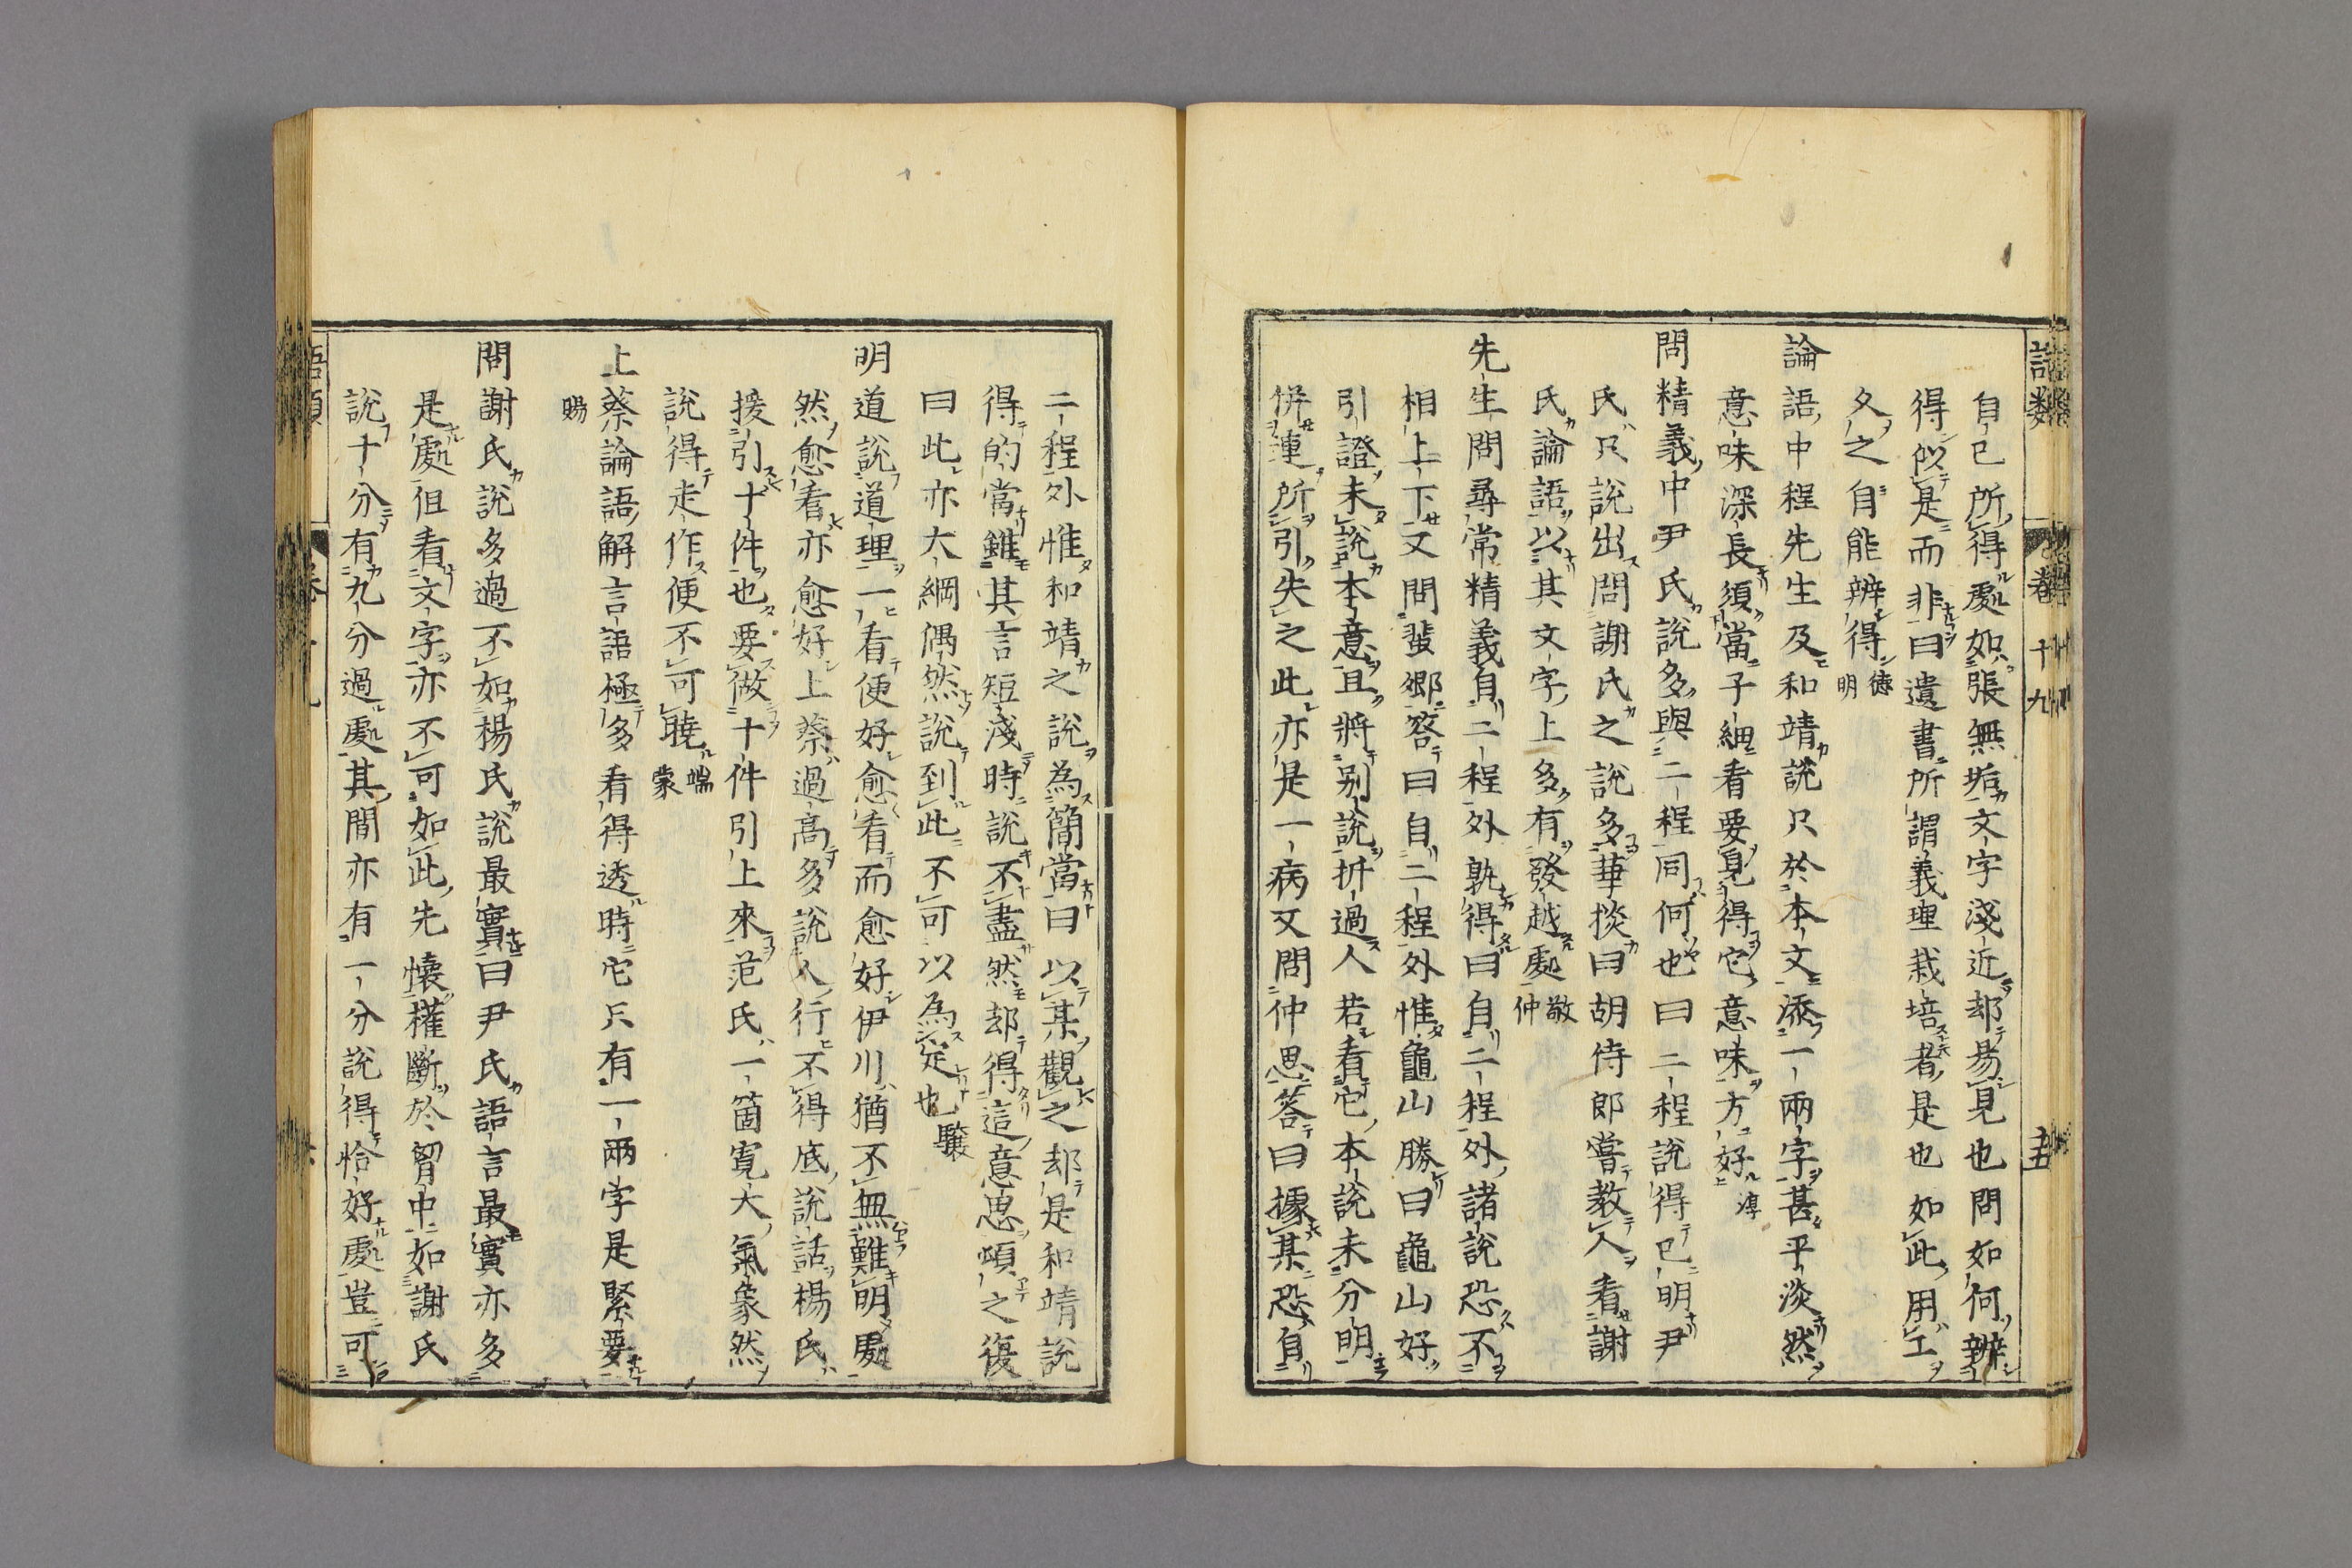 自己所得處如張無垢文字淺近却易見也問如何辨
得似是而非曰遺書所謂義理栽培者是也如此用工
久之自能辨得德明
論語中程先生及和靖說只於本文添一兩字甚平淡然
意味深長須當子細看要見得它意味方好淳
問精義中尹氏說多與二程同何也曰二程說得已明尹
氏只說出問謝氏之說多華掞曰胡侍郎嘗教人看謝
氏論語以其文字上多有發越處敬仲
先生問尋常精義自二程外孰得曰自二程外諸說恐不
相上下又問蜚卿答曰自二程外惟龜山勝曰龜山好
引證未說本意且將别說折過人若看它本說未分明
併連所引失之此亦是一病又問仲思答曰據某恐自
語類
卷十九
五
二程外惟和靖之說為簡當曰以某觀之却是和靖說
得的當雖其言短淺時說不盡然却得這意思頓之復
曰此亦大綱偶然說到此不可以為定也驤
明道說道理一看便好愈看而愈好伊川猶不無難明處
然愈看亦愈好上蔡過高多說人行不得底說話楊氏
援引十件也要做十件引上來范氏一箇寛大氣象然
說得走作便不可曉端蒙
上蔡論語解言語極多看得透時它只有一兩字是緊要
賜
問謝氏說多過不如楊氏說最實曰尹氏語言最實亦多
是處但看文字亦不可如此先懷權斷於胷中如謝氏
說十分有九分過處其間亦有一分說得恰好處豈可